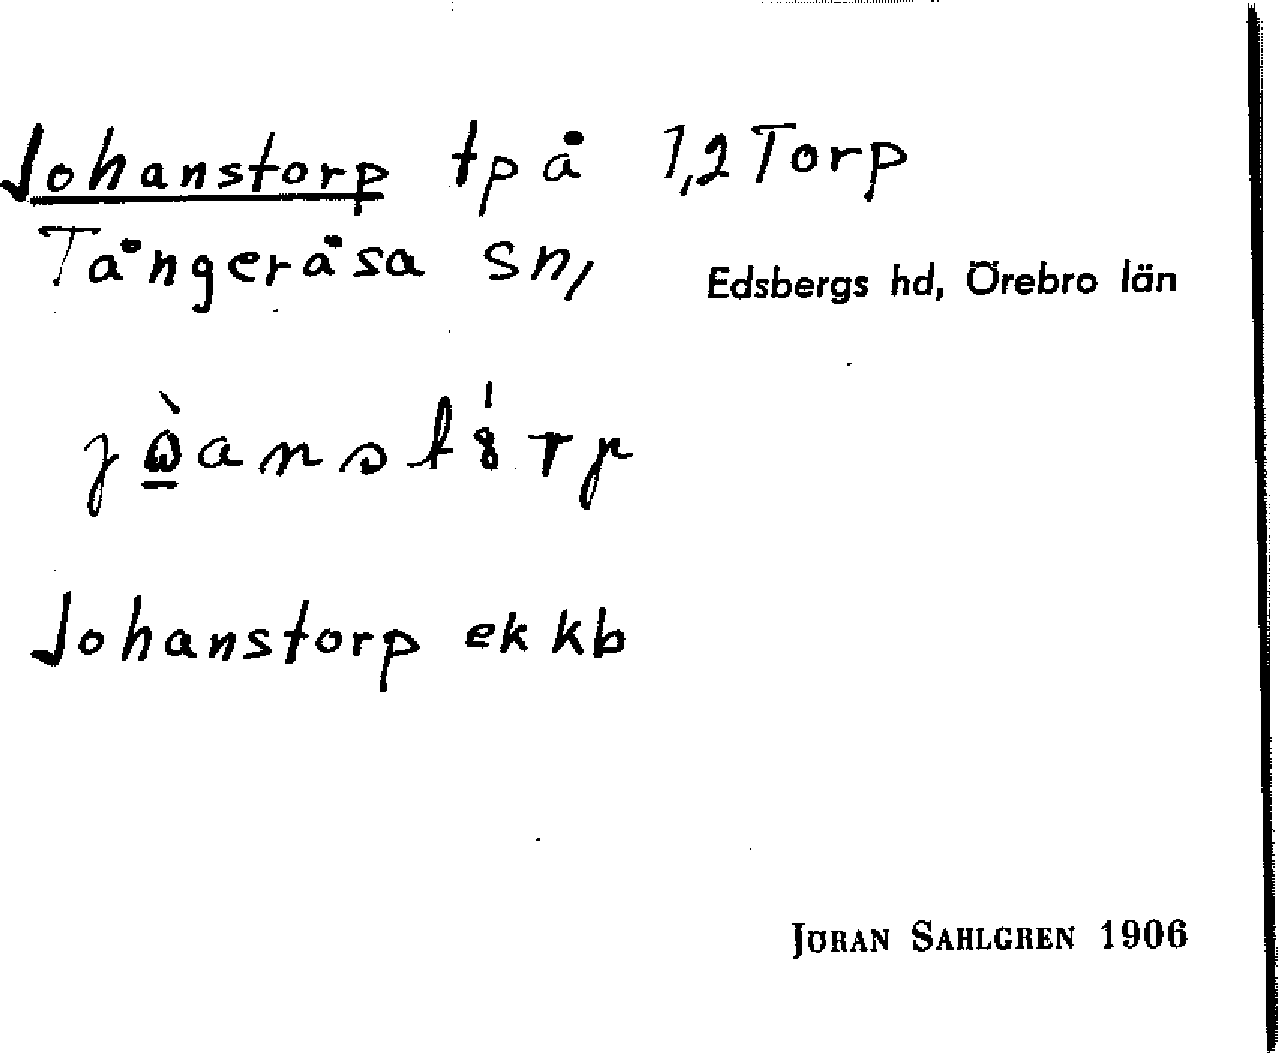 Johanstorp tp å 1,2 Torp
Tångeråsa sn, Edsbergs hd, Örebro län
Johanstorp ek kb
JÖRAN SAHLGREN 1906